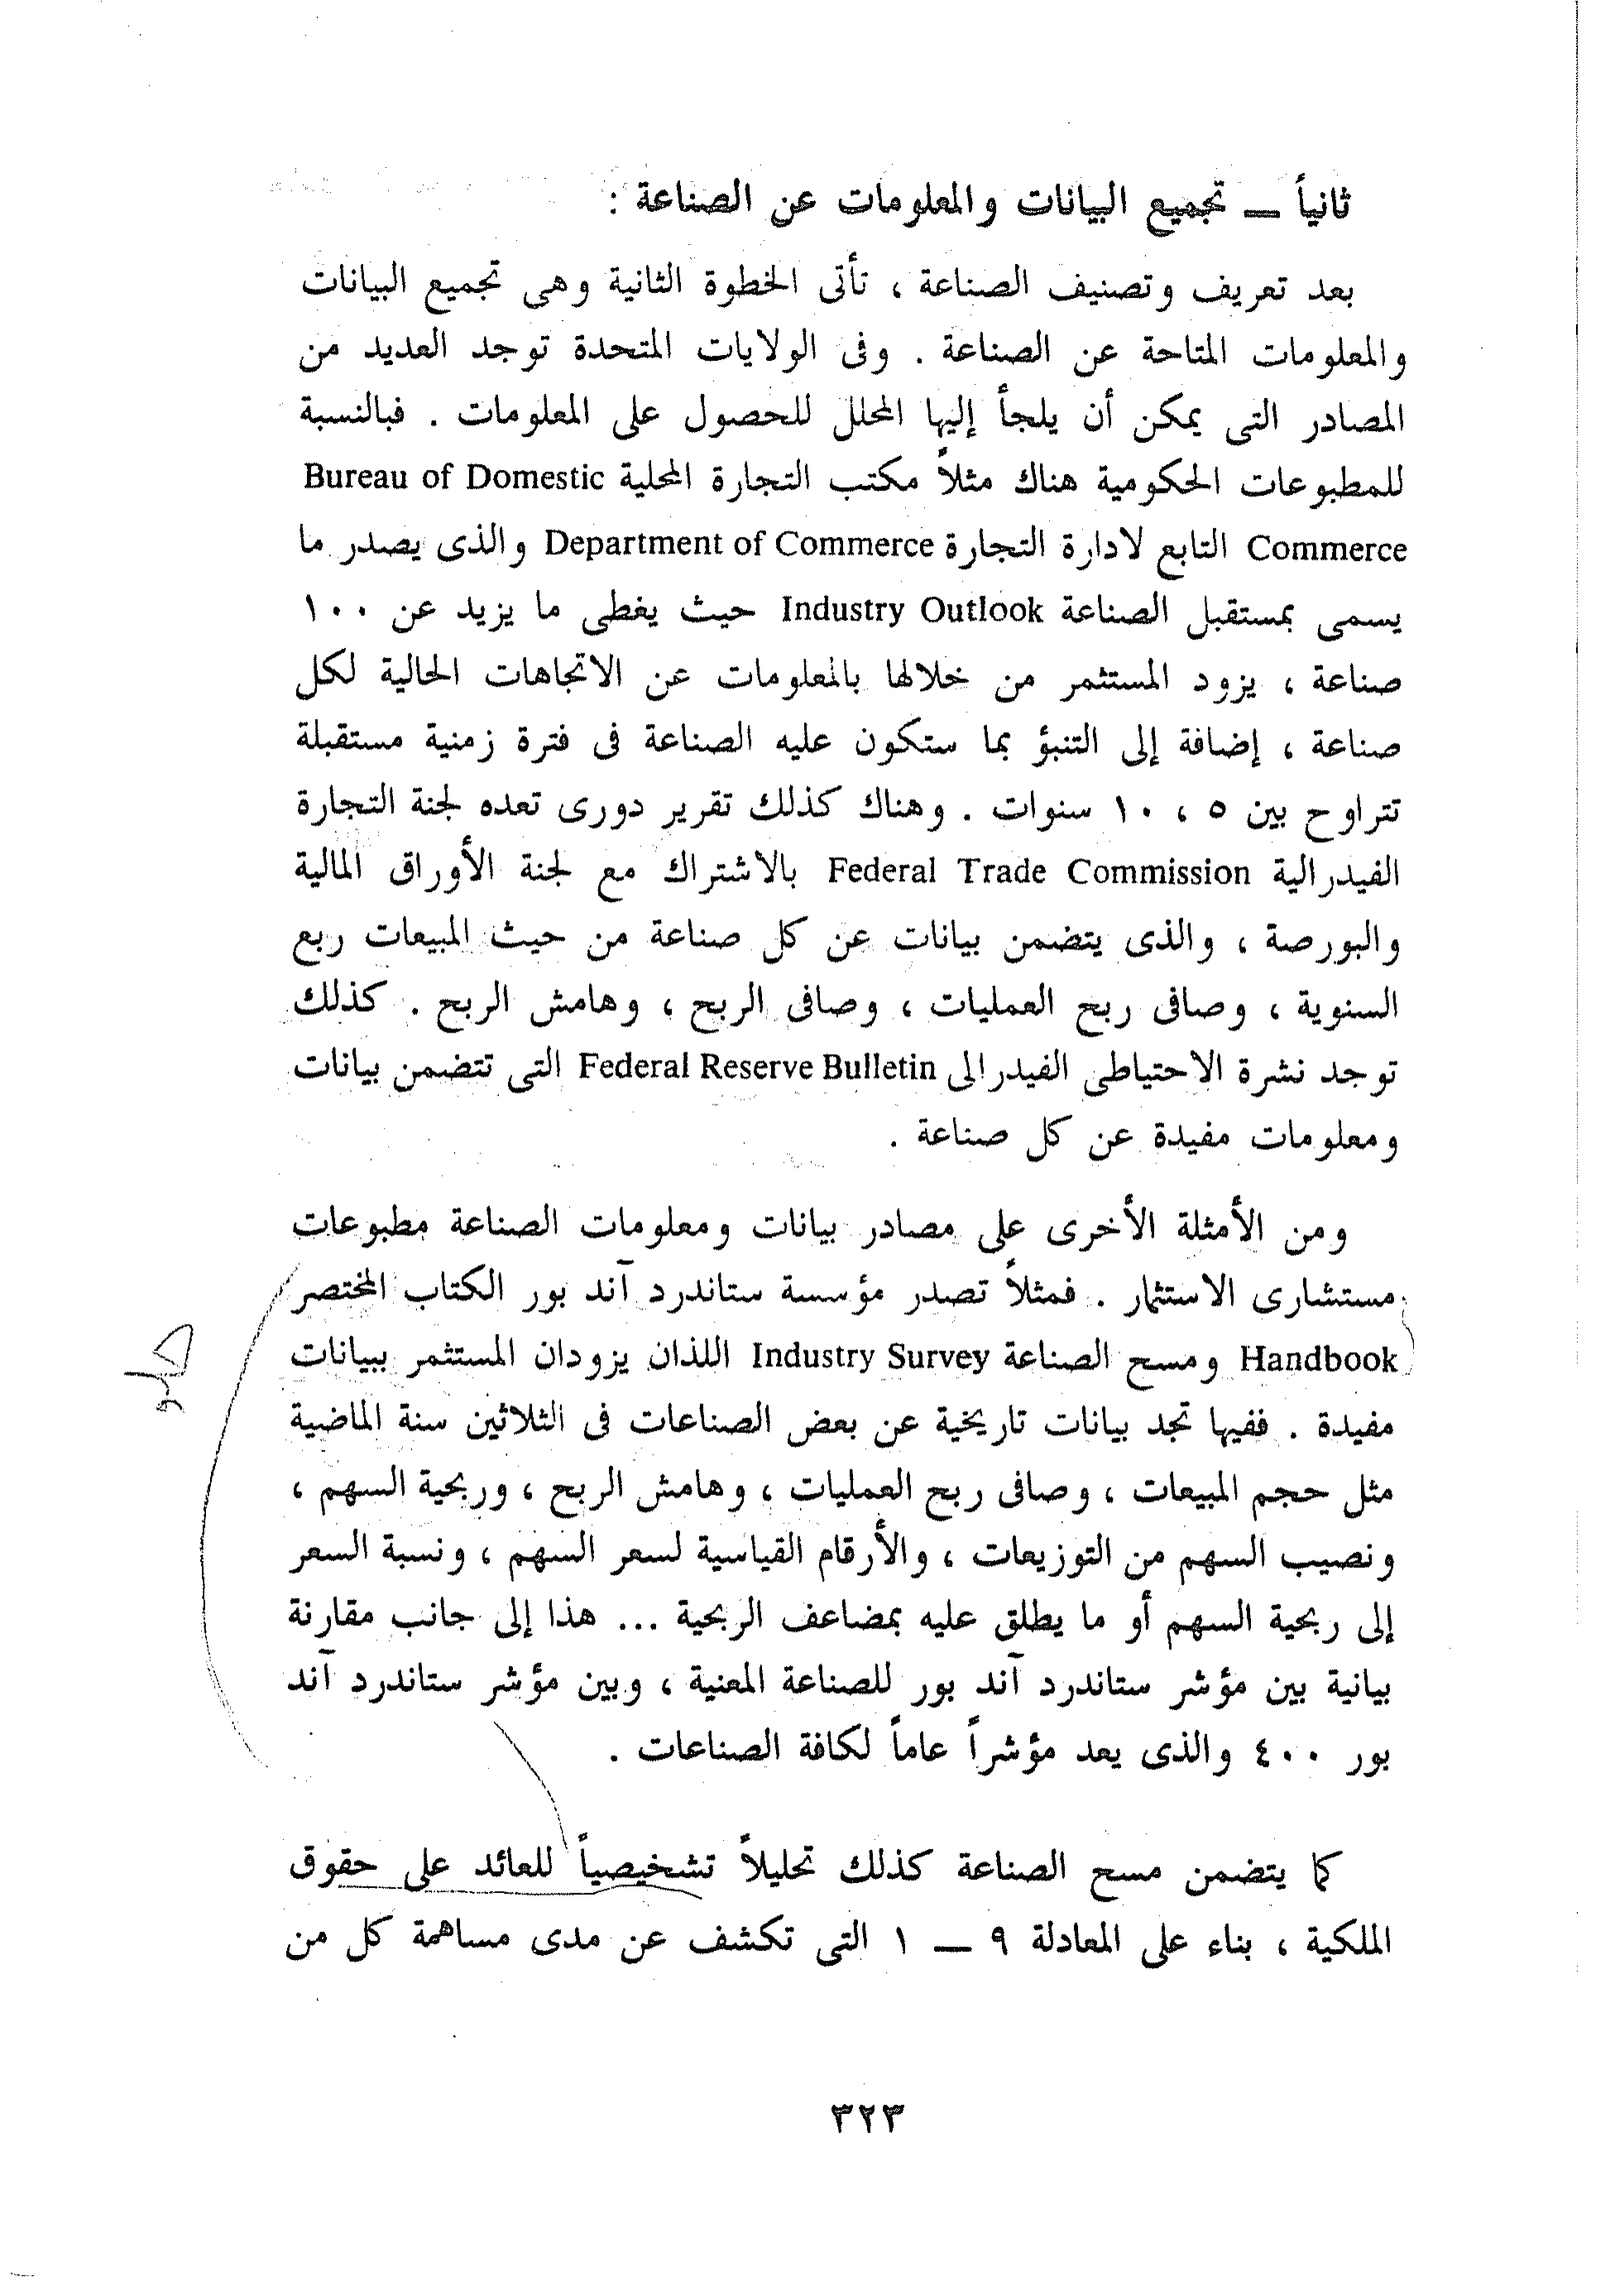 ثانياً — تجميع البيانات والمعلومات عن الصناعة :
بعد تعريف وتصنيف الصناعة ، تأتى الخطوة الثانية وهى تجميع البيانات
والمعلومات المتاحة عن الصناعة . وفى الولايات المتحدة توجد العديد من
المصادر التى يمكن أن يلجأ إليها المحلل للحصول على المعلومات . فبالنسبة
للمطبوعات الحكومية هناك مثلاً مكتب التجارة المحلية Bureau of Domestic
Commerce التابع لادارة التجارة Department of Commerce والذى يصدر ما
يسمى بمستقبل الصناعة Industry Outlook حيث يغطى ما يزيد عن ١٠٠
صناعة ، يزود المستثمر من خلالها بالمعلومات عن الاتجاهات الحالية لكل
صناعة ، إضافة إلى التنبؤ بما ستكون عليه الصناعة فى فترة زمنية مستقبلة
تتراوح بين ٥ ، ١٠ سنوات . وهناك كذلك تقرير دورى تعده لجنة التجارة
الفيدرالية Federal Trade Commission بالاشتراك مع لجنة الأوراق المالية
والبورصة ، والذى يتضمن بيانات عن كل صناعة من حيث المبيعات ربع
السنوية ، وصافى ربح العمليات ، وصافى الربح ، وهامش الربح . كذلك
توجد نشرة الاحتياطى الفيدرالى Federal Reserve Bulletin التى تتضمن بيانات
ومعلومات مفيدة عن كل صناعة .
ومن الأمثلة الأخرى على مصادر بيانات ومعلومات الصناعة مطبوعات
مستشارى الاستثمار . فمثلاً تصدر مؤسسة ستاندرد آند بور الكتاب المختصر
Handbook ومسح الصناعة Industry Survey اللذان يزودان المستثمر ببيانات
مفيدة . ففيها تجد بيانات تاريخية عن بعض الصناعات فى الثلاثين سنة الماضية
مثل حجم المبيعات ، وصافى ربح العمليات ، وهامش الربح ، وربحية السهم ،
ونصيب السهم من التوزيعات ، والأرقام القياسية لسعر السهم ، ونسبة السعر
إلى ربحية السهم أو ما يطلق عليه بمضاعف الربحية ... هذا إلى جانب مقارنة
بيانية بين مؤشر ستاندرد آند بور للصناعة المعنية ، وبين مؤشر ستاندرد آند
بور ٤٠٠ والذى يعد مؤشراً عاماً لكافة الصناعات .
كما يتضمن مسح الصناعة كذلك تحليلاً تشخيصياً للعائد على حقوق
الملكية ، بناء على المعادلة ٩ — ١ التى تكشف عن مدى مساهمة كل من
٣٢٣